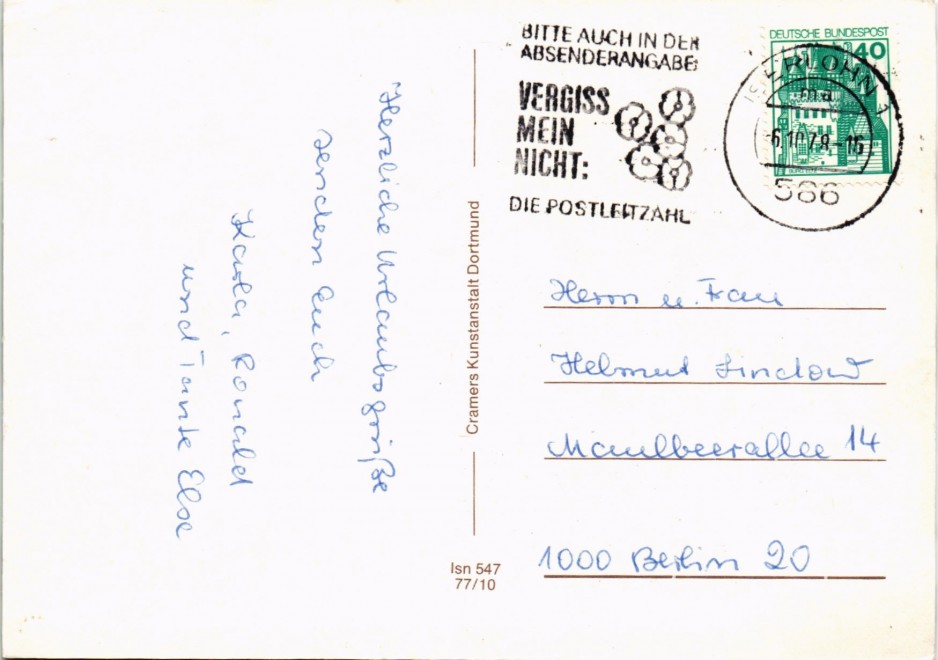 Herzliche Urlaubsgrüße
senden Euch
Karla, Ronald
und Tante Else
Cramers Kunstanstalt Dortmund
Isn 547
77/10
BITTE AUCH IN DER
ABSENDERANGABE:
VERGISS
MEIN
NICHT:
DIE POSTLEITZAHL
DEUTSCHE BUNDESPOST
40
ISERLOHN 1
ma
-6.10.78-16
586
Herrn u. Frau
Helmut Lindow
Maulbeerallee 14
1000 Berlin 20